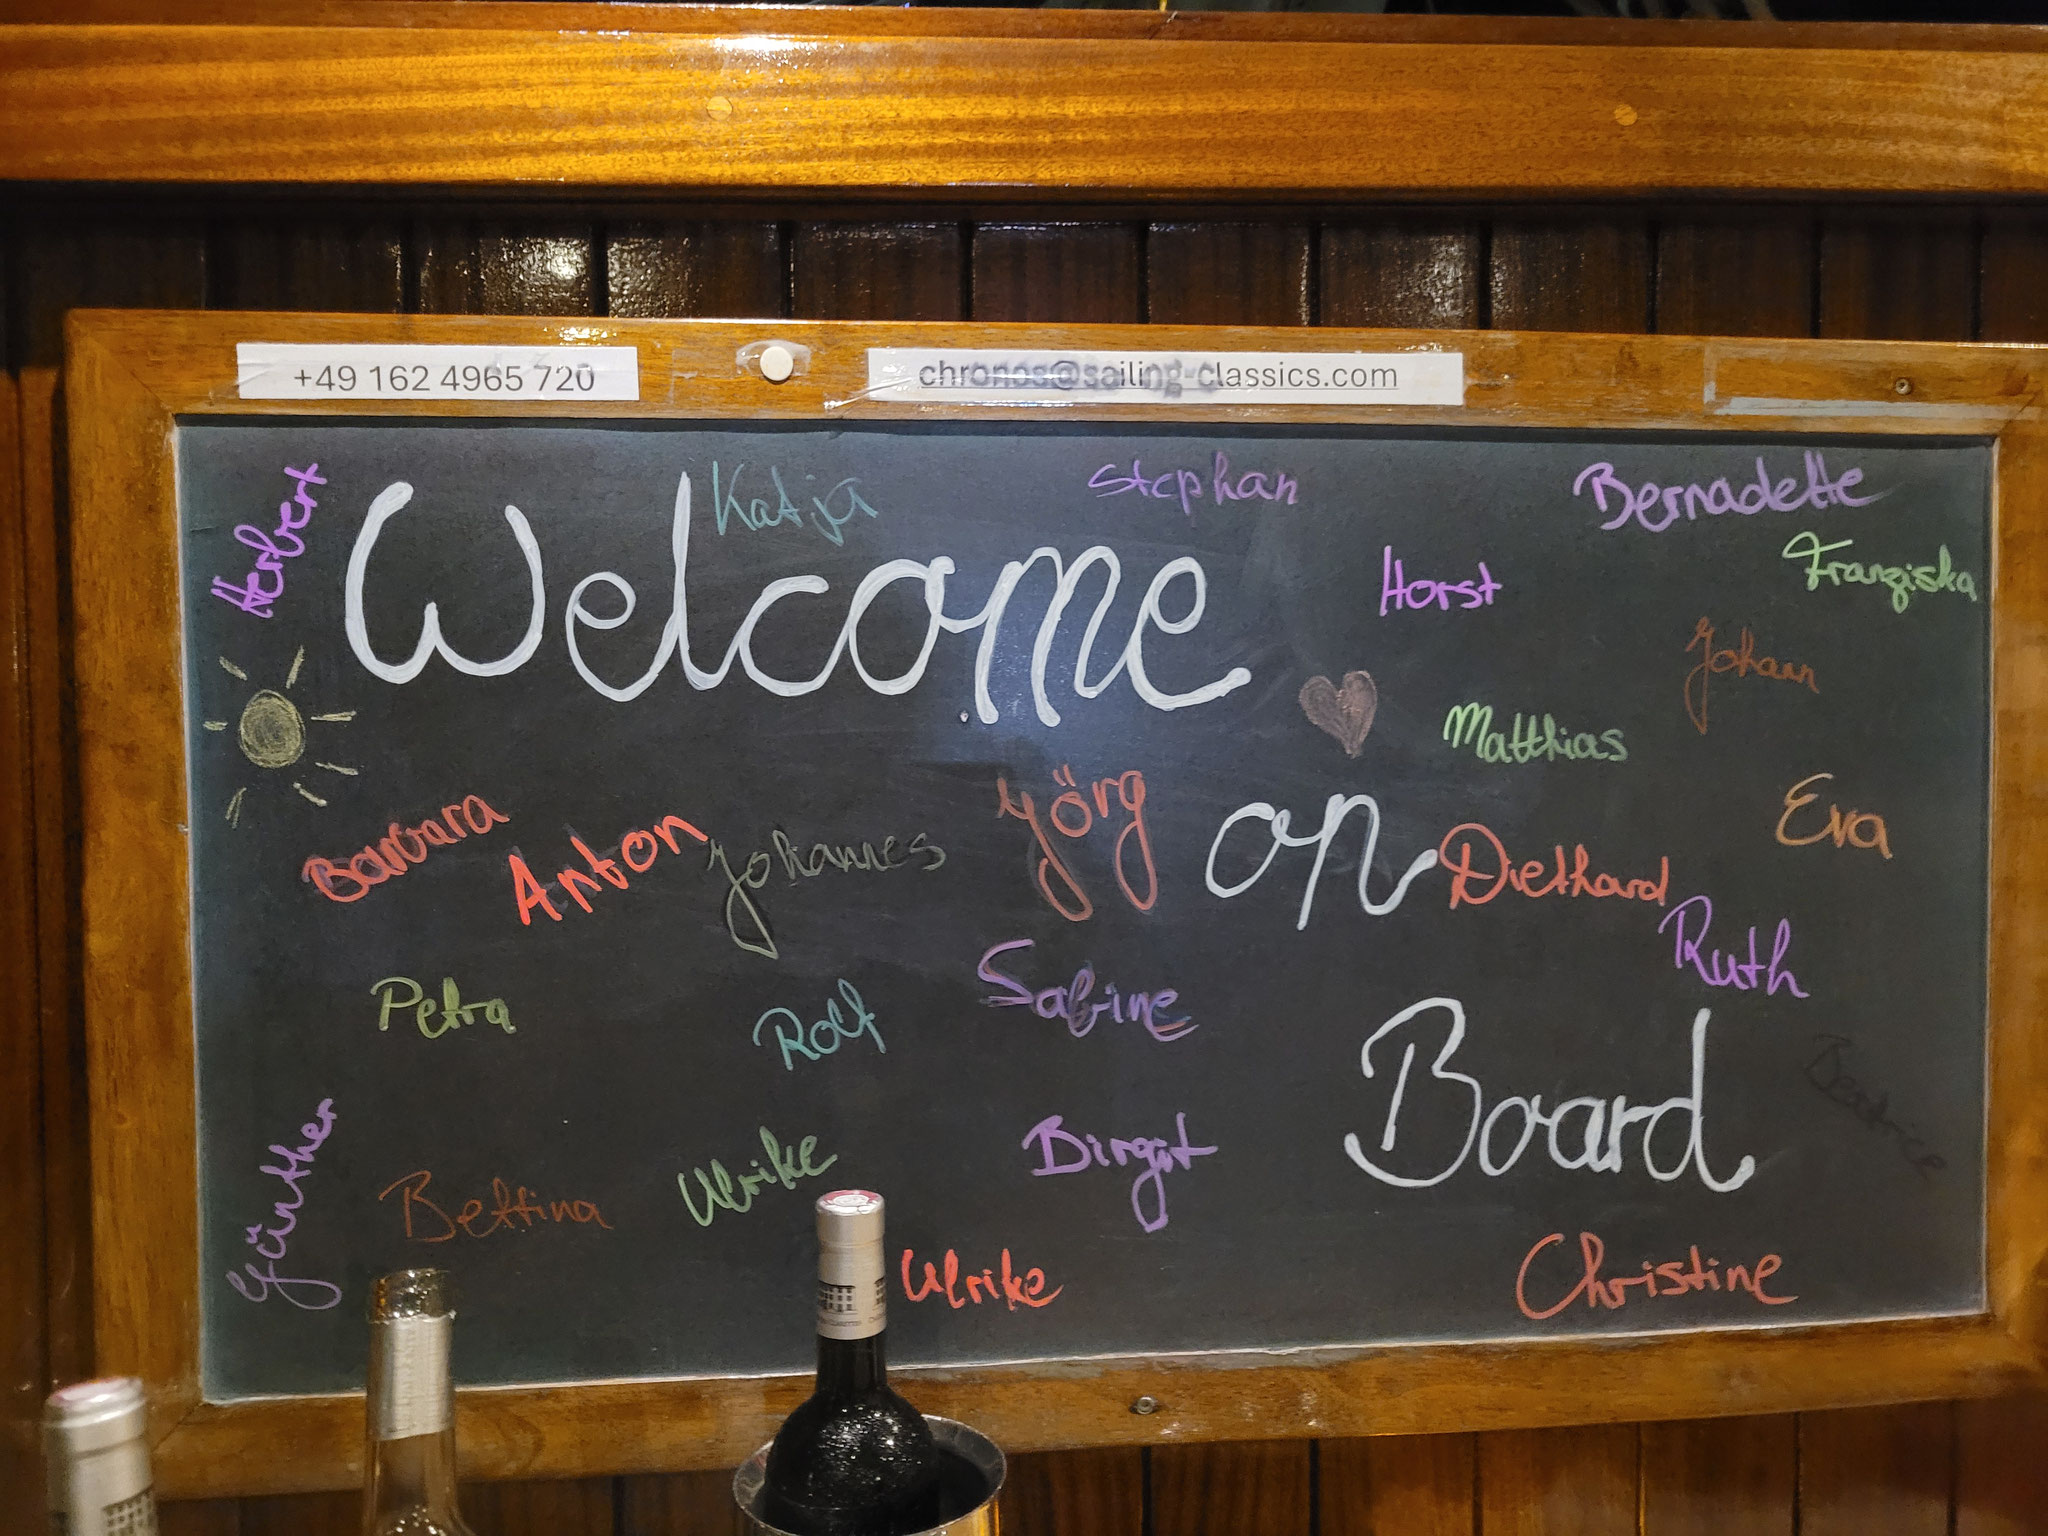 +49 162 4965 720
chronos@sailing-classics.com
Herbert
Welcome
Katja
Stephan
Bernadette
Horst
Franziska
Johann
Matthias
Barbara
Anton
Johannes
Jörg
on
Diethard
Eva
Ruth
Petra
Rolf
Sabine
Board
Beatrice
Günther
Bettina
Ulrike
Birgit
Ulrike
Christine